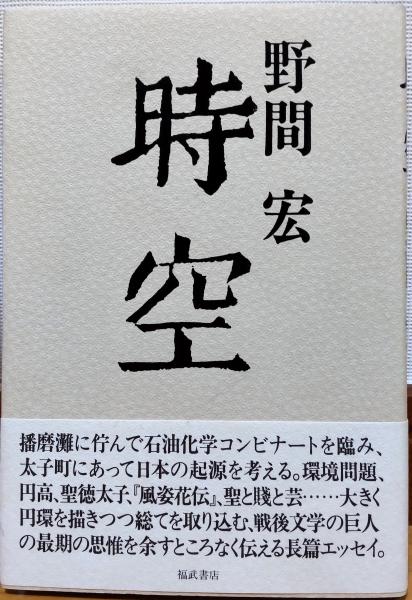 野間 宏
時空
播磨灘に佇んで石油化学コンビナートを臨み、
太子町にあって日本の起源を考える。環境問題、
円高、聖徳太子、『風姿花伝』、聖と賤と芸……大きく
円環を描きつつ総てを取り込む、戦後文学の巨人
の最期の思惟を余すところなく伝える長篇エッセイ。
福武書店